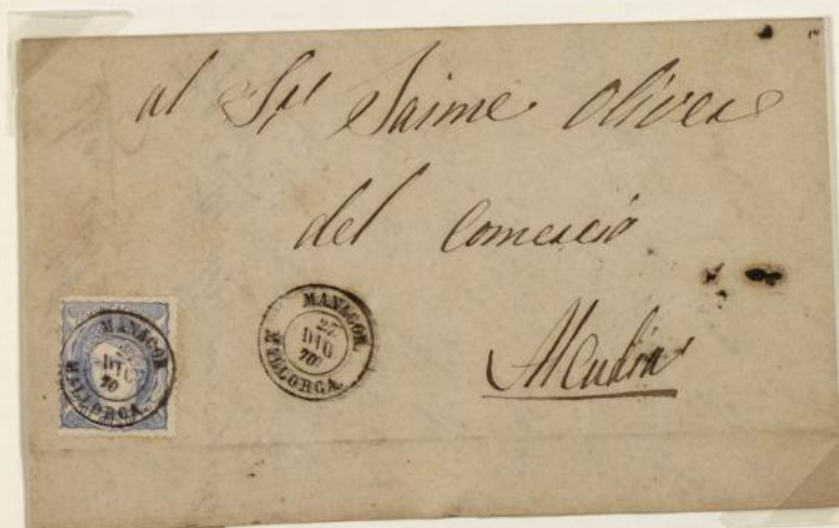 al Sr Jaime Oliver
del Comercio
Alcudia
MANACOR
27
DIC
70
MALLORCA.
MANACOR.
DIC
70
MALLORCA.